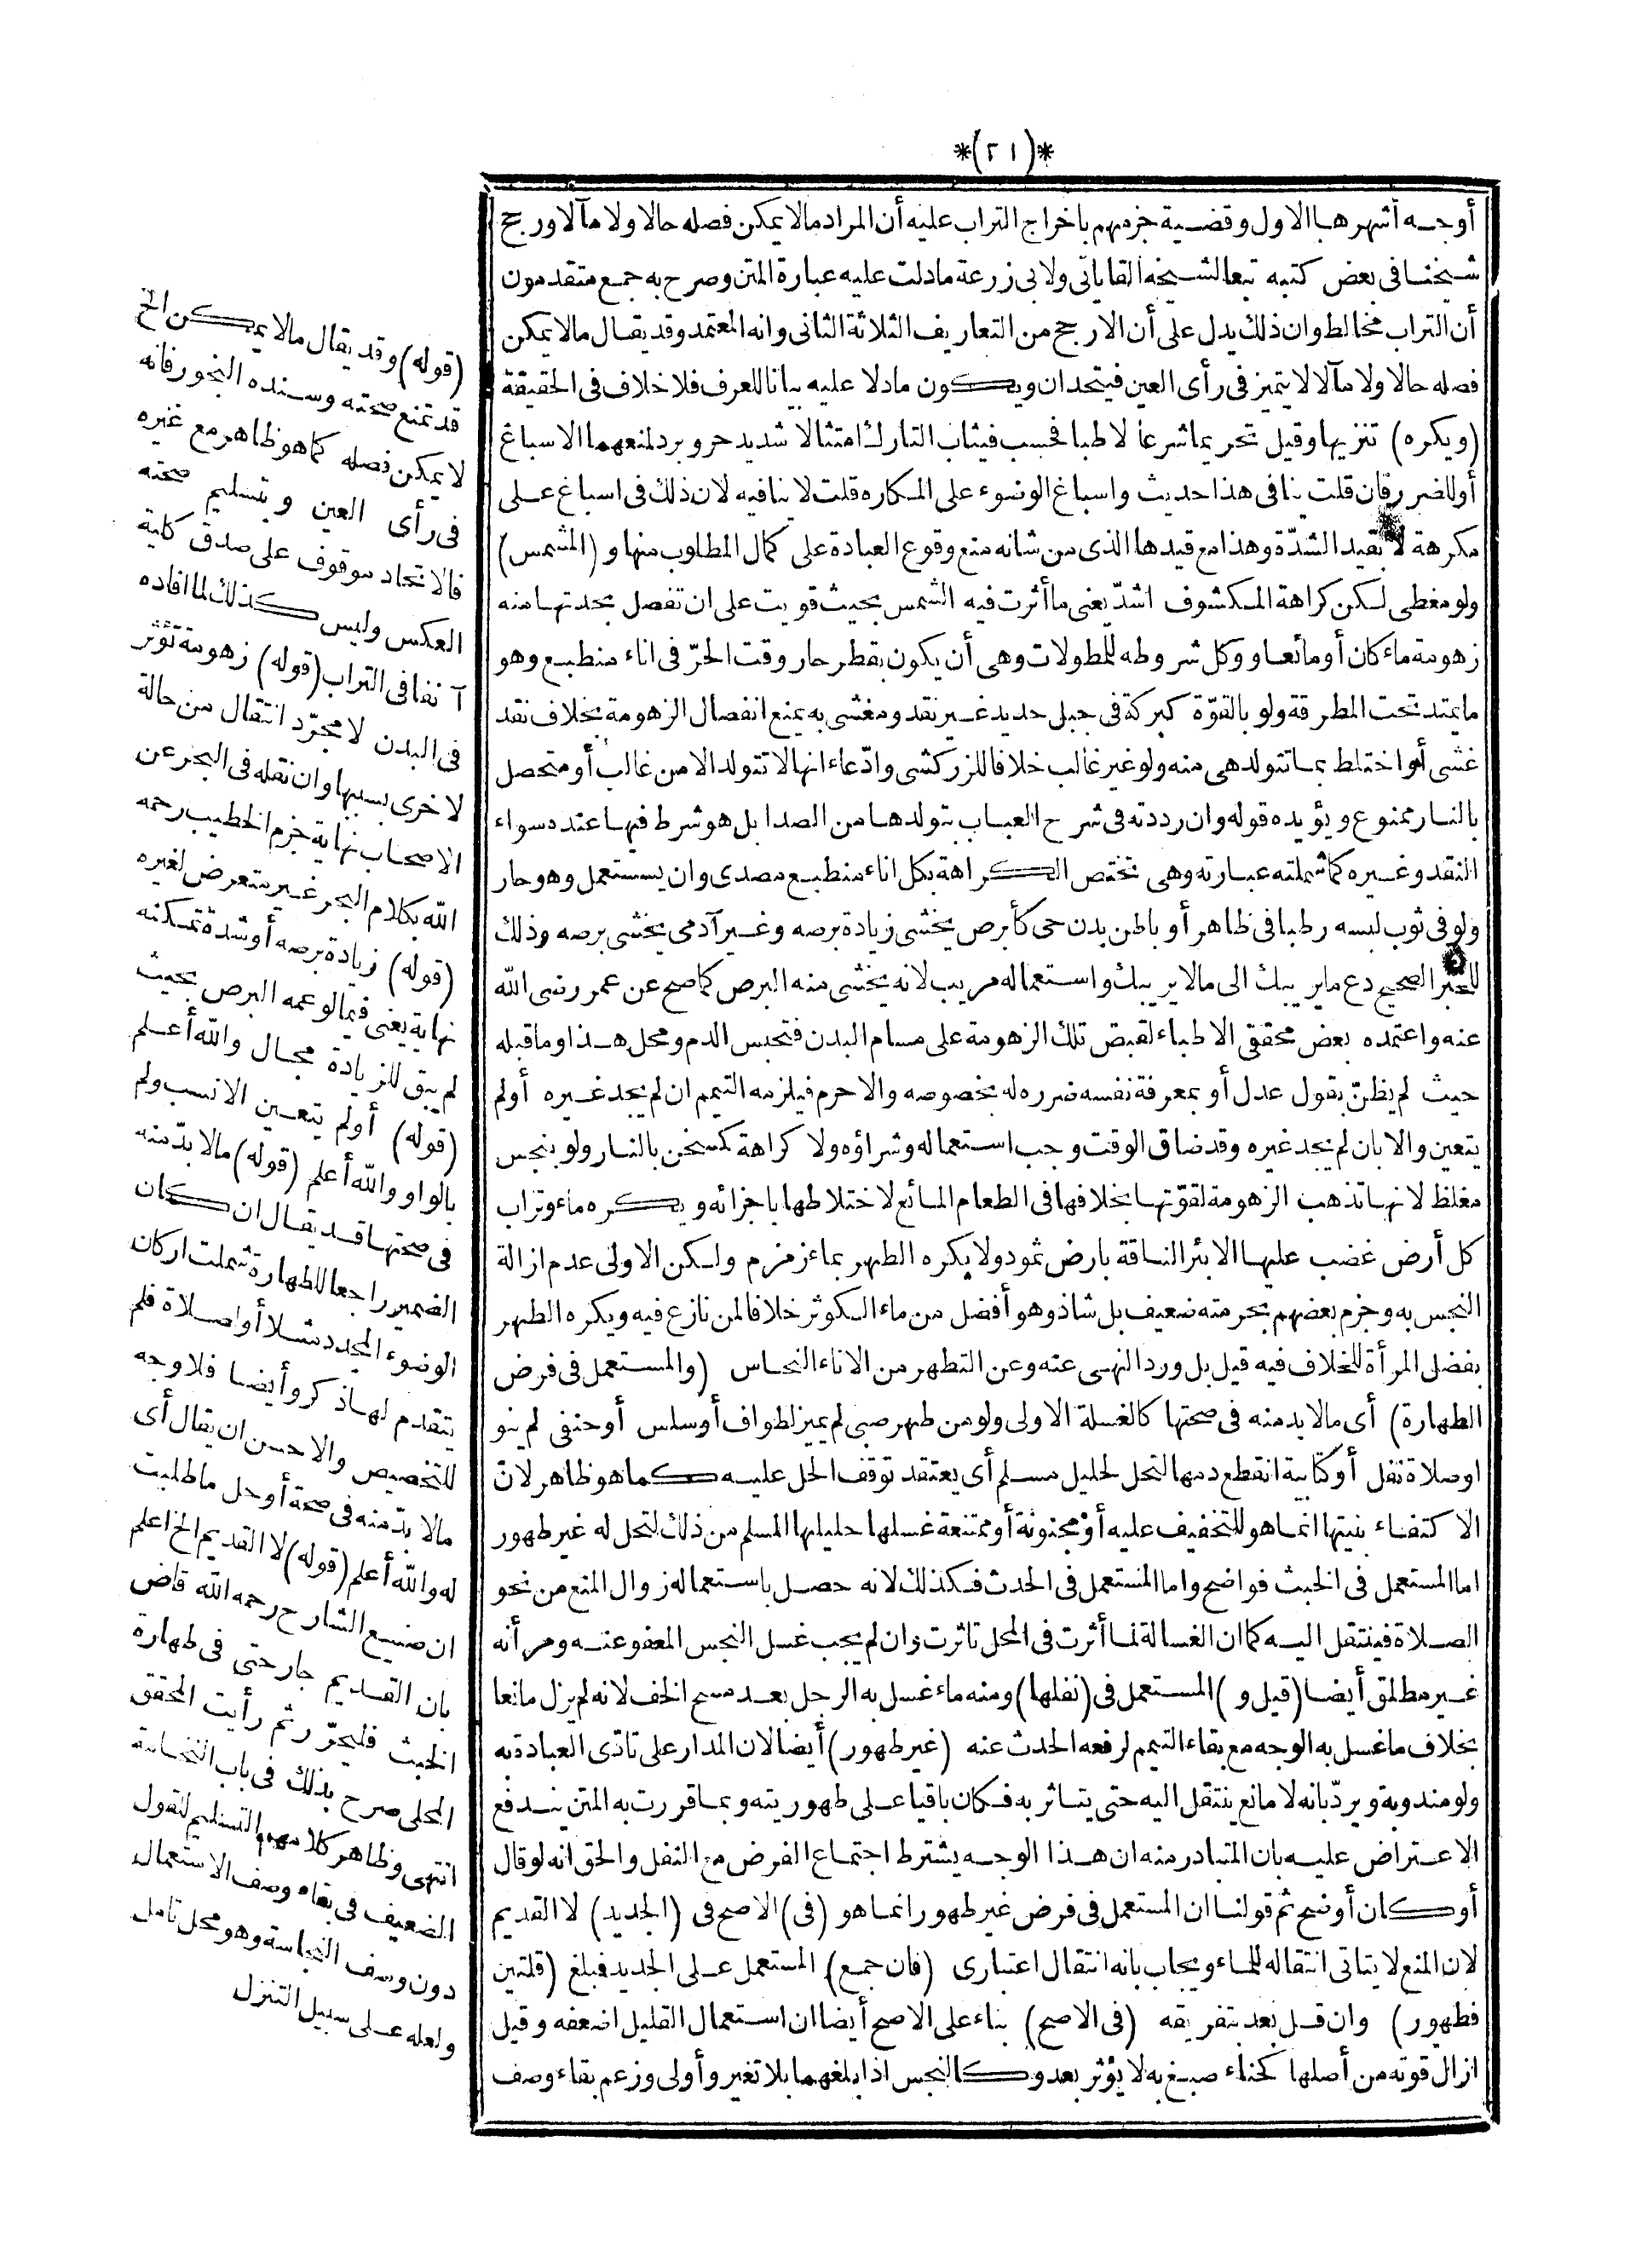 *(٢١)*
أوجه أشهرها الاول وقضية جزمهم باخراج التراب عليه أن المراد مالا يمكن فصله حالا ولا مآلا ورجح
شيخنا فى بعض كتبه تبعا لشيخه القاياتى ولابى زرعة مادلت عليه عبارة المتن وصرح به جمع متقدمون
أن التراب مخالط وان ذلك يدل على أن الارجح من التعاريف الثلاثة الثانى وانه المعتمد وقد يقال مالا يمكن
فصله حالا ولا مآلا لا يتميز فى رأى العين فيتحدان ويكون مادلا عليه بيانا للعرف فلا خلاف فى الحقيقة
(ويكره) تنزيها وقيل تحريما شرعا لا طبا فحسب فيثاب التارك امتثالا شديد حر وبرد لمنعهما الاسباغ
أو للضرر فان قلت ينافى هذا حديث واسباغ الوضوء على المكاره قلت لا ينافيه لان ذلك فى اسباغ على
مكرهة لا بقيد الشدّة وهذا مع قيدها الذى من شانه منع وقوع العبادة على كمال المطلوب منها و (المشمس)
ولو مغطى لكن كراهة المكشوف اشدّ يعنى ما أثرت فيه الشمس بحيث قويت على ان تفصل بحدتها منه
زهومة ماء كان أو مائعا و وكل شروطه للمطولات وهى أن يكون بقطر حار وقت الحرّ فى اناء منطبع وهو
ما يمتد تحت المطرقة ولو بالقوّة كبركة فى جبل حديد غير نقد ومغشى به يمنع انفصال الزهومة بخلاف نقد
غشى أو اختلط بما تتولد هى منه ولو غير غالب خلافا للزركشى وادّعاء انها لا تتولد الا من غالب أو متحصل
بالنار ممنوع ويؤيده قوله وان رددته فى شرح العباب بتولدها من الصدا بل هو شرط فيها عنده سواء
النقد وغيره كما شملته عبارته وهى تختص الكراهة بكل اناء منطبع مصدى وان يستعمل وهو حار
ولو فى ثوب لبسه رطبا فى ظاهر أو باطن بدن حى كأبرص يخشى زيادة برصه وغير آدمى يخشى برصه وذلك
للخبر الصحيح دع ما يريبك الى مالا يريبك واستعماله مريب لانه يخشى منه البرص كما صح عن عمر رضى الله
عنه واعتمده بعض محققى الاطباء لقبض تلك الزهومة على مسام البدن فتحبس الدم ومحل هذا وما قبله
حيث لم يظنّ بقول عدل أو بمعرفة نفسه ضرره له بخصوصه والا حرم فيلزمه التيمم ان لم يجد غيره أولم
يتعين والا بان لم يجد غيره وقد ضاق الوقت وجب استعماله وشراؤه ولا كراهة كمسخن بالنار ولو بنجس
مغلظ لانها تذهب الزهومة لقوّتها بخلافها فى الطعام المائع لاختلاطها باجزائه ويكره ماء وتراب
كل أرض غضب عليها الا بئر الناقة بارض ثمود ولا يكره الطهر بماء زمزم ولكن الاولى عدم ازالة
النجس به وجزم بعضهم بحرمته ضعيف بل شاذ وهو أفضل من ماء الكوثر خلافا لمن نازع فيه ويكره الطهر
بفضل المرأة للخلاف فيه قيل بل ورد النهى عنه وعن التطهر من الاناء النحاس (والمستعمل فى فرض
الطهارة) أى مالا بد منه فى صحتها كالغسلة الاولى ولو من طهر صبى لم يميز لطواف أو سلس أو حنفى لم ينو
او صلاة نفل أو كتابية انقطع دمها لتحل لحليل مسلم أى يعتقد توقف الحل عليه كما هو ظاهر لانّ
الاكتفاء بنيتها انما هو للتخفيف عليه أو مجنونة أو ممتنعة غسلها حليلها المسلم من ذلك لتحل له غير طهور
اما المستعمل فى الخبث فواضح واما المستعمل فى الحدث فكذلك لانه حصل باستعماله زوال المنع من نحو
الصلاة فينتقل اليه كما ان الغسالة لما أثرت فى المحل تاثرت وان لم يجب غسل النجس المعفو عنه ومر أنه
غير مطلق أيضا (قيل و) المستعمل فى (نفلها) ومنه ماء غسل به الرجل بعد مسح الخف لانه لم يزل مانعا
بخلاف ما غسل به الوجه مع بقاء التيمم لرفعه الحدث عنه (غير طهور) أيضا لان المدار على تاذى العبادة به
ولو مندوبة ويردّ بانه لا مانع ينتقل اليه حتى يتاثر به فكان باقيا على طهوريته وبما قررت به المتن يندفع
الاعتراض عليه بان المتبادر منه ان هذا الوجه يشترط اجتماع الفرض مع النفل والحق انه لو قال
أو كان أوضح ثم قولنا ان المستعمل فى فرض غير طهور انما هو (فى) الاصح فى (الجديد) لا القديم
لان المنع لا يتاتى انتقاله للماء ويجاب بانه انتقال اعتبارى (فان جمع) المستعمل على الجديد فبلغ (قلتين
فطهور) وان قل بعد بتفريقه (فى الاصح) بناء على الاصح أيضا ان استعمال القليل اضعفه وقيل
ازال قوته من أصلها كحناء صبغ به لا يؤثر بعد وكالنجس اذا بلغهما بلا تغير وأولى وزعم بقاء وصف
(قوله) وقد يقال مالا يمكن الخ
قد تمنع صحته وسنده البخور فانه
لا يمكن فصله كما هو ظاهر مع غيره
فى رأى العين وبتسليم صحته
فالاتحاد موقوف على صدق كلية
العكس وليس كذلك لما افاده
آنفا فى التراب (قوله) زهومة تؤثر
فى البدن لا مجرّد انتقال من حالة
لاخرى بسببها وان نقله فى البحر عن
الاصحاب نهاية جزم الخطيب رحمه
الله بكلام البحر غير متعرض لغيره
(قوله) زيادة برصه أو شدة تمكنه
نهاية يعنى فيما لو عمه البرص بحيث
لم يبق للزيادة مجال والله أعلم
(قوله) أولم يتعين الانسب ولم
بالواو والله أعلم (قوله) مالا بدّ منه
فى صحتها قد يقال ان كان
الضمير راجعا للطهارة شملت اركان
الوضوء المجدد مثلا أو اصلاة فلم
يتقدم لها ذكر وأيضا فلا وجه
للتخصيص والاحسن ان يقال أى
مالا بدّ منه فى صحة أو حل ما طلبت
له والله أعلم (قوله) لا القديم الخ اعلم
ان صنيع الشارح رحمه الله قاض
بان القديم جار حتى فى طهارة
الخبث فليحرّر ثم رأيت المحقق
المحلى صرح بذلك فى باب النجاسة
انتهى وظاهر كلامهم التسليم للقول
الضعيف فى بقاء وصف الاستعمال
دون وصف النجاسة وهو محل تامل
ولعله على سبيل التنزل